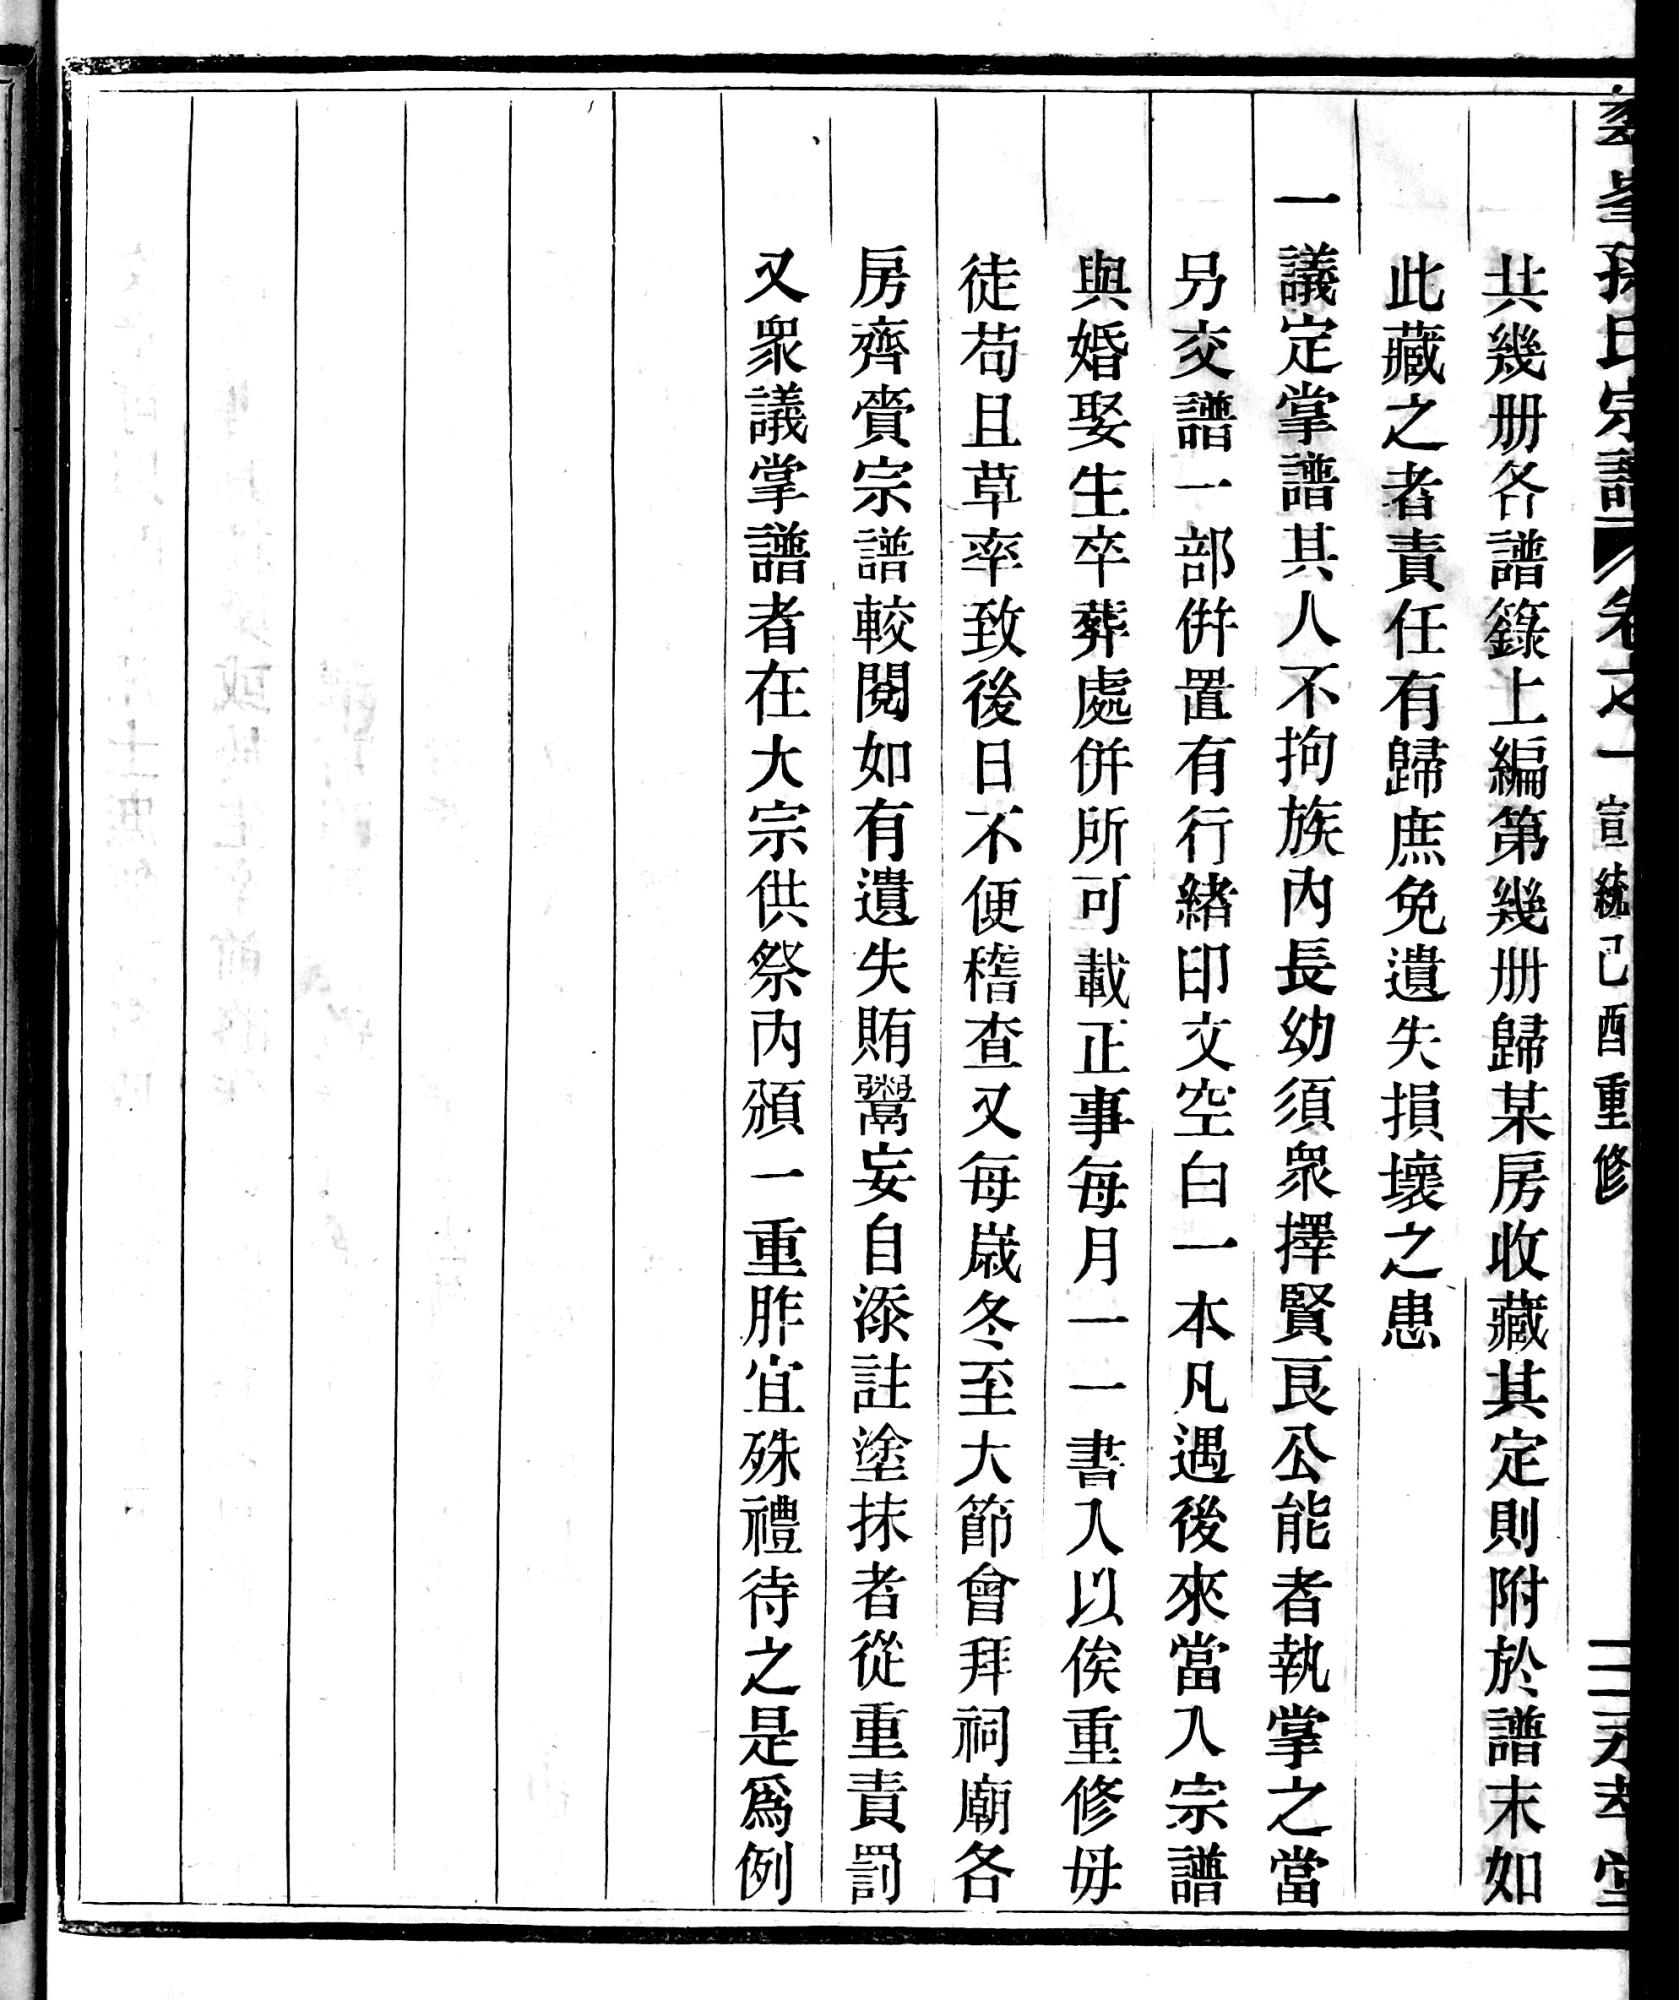 孫氏宗譜 卷之一 宣統己酉重修 二 孝堂
共幾册各譜錄上編第幾册歸某房收藏其定則附於譜末如
此藏之者責任有歸庶免遺失損壞之患
一議定掌譜其人不拘族內長幼須衆擇賢良公能者執掌之當
另交譜一部併置有行緒印文空白一本凡遇後來當入宗譜
與婚娶生卒葬處併所可載正事每月一一書入以俟重修毋
徒苟且草率致後日不便稽查又每歲冬至大節會拜祠廟各
房齊賫宗譜較閱如有遺失賄鬻妄自添註塗抹者從重責罰
又衆議掌譜者在大宗供祭內頒一重胙宜殊禮待之是爲例